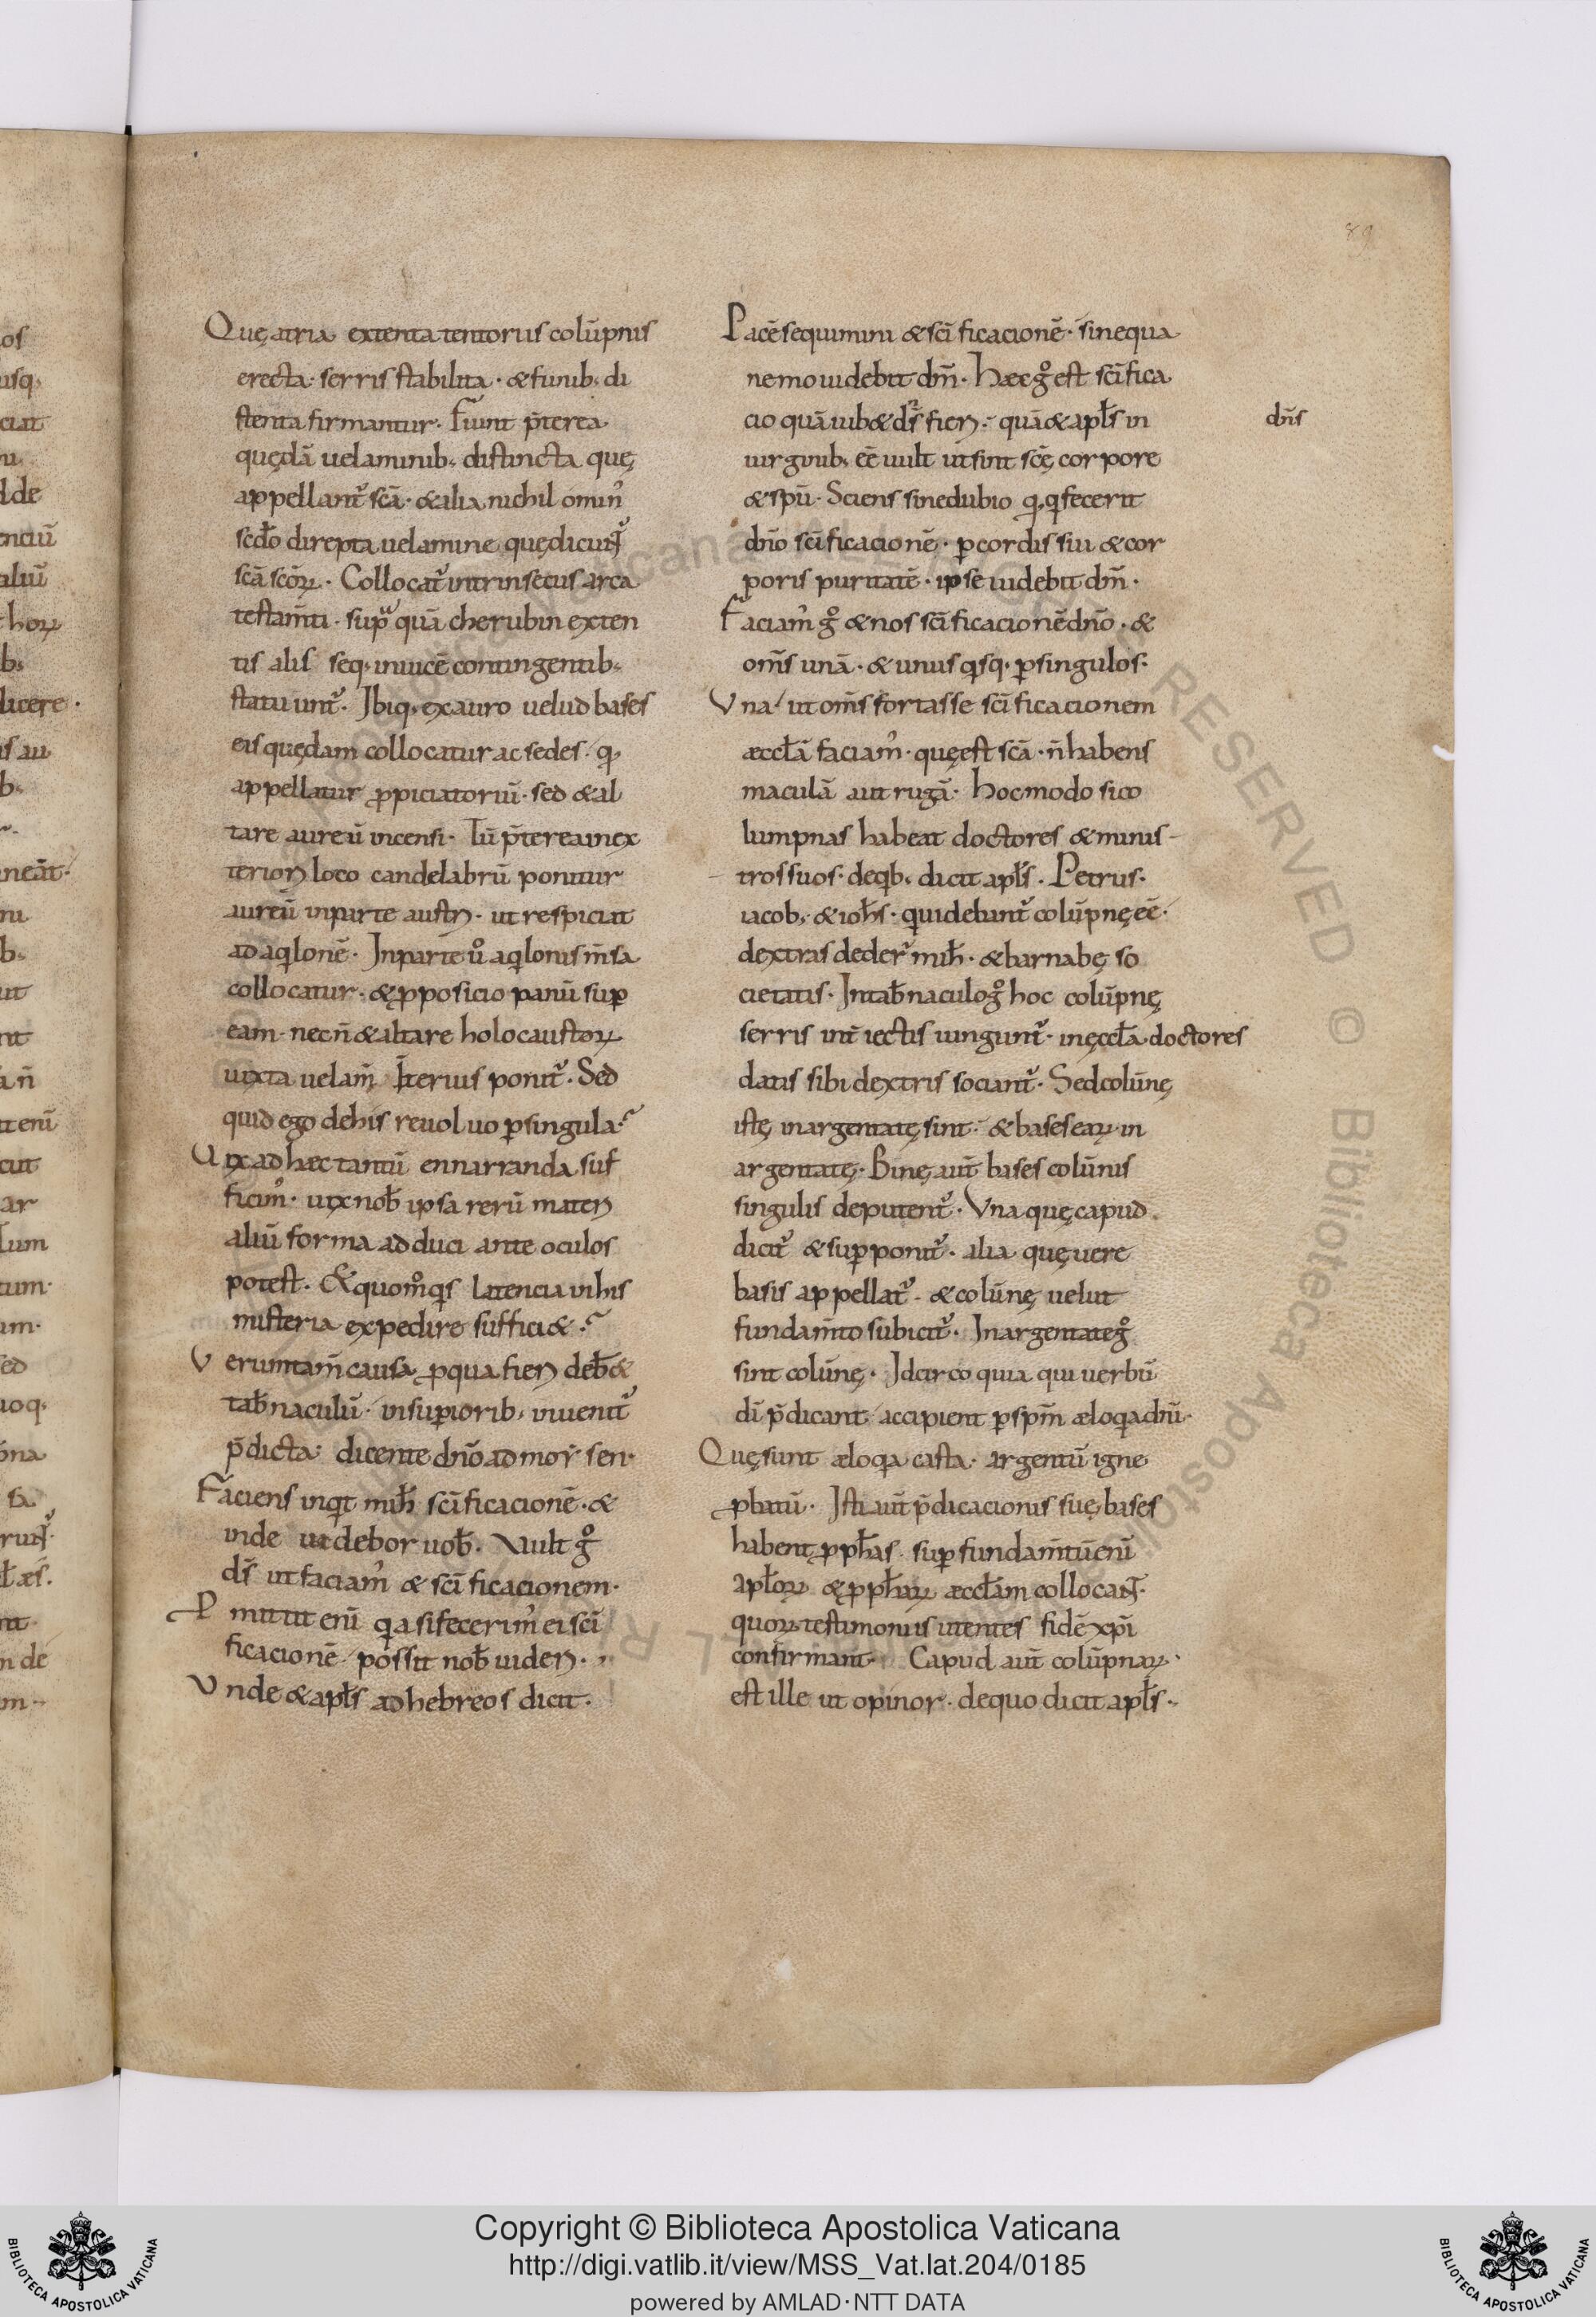 89
Quę atria extenta tentoriis colūpnis
erecta· serris stabilita· & funib; di
stenta firmantur. Fiunt p̄terea
quędā uelaminib; distincta quę
appellant᷑ scā· & alia nichil omin᾿
sed̵o direpta uelamine quę dicunt᷑
scā scōꝝ. Collocat᷑ intrinsecus arca
testam̄ti· supͣ quā cherubin exten
tis alis seq; inuicē contingentib;
statuunt᷑. Ibiq; ex auro uelud bases
eis quędam collocatur ac sedes· qđ
appellatur ꝓpiciatoriū· sed & al
tare aureū incensi. Tū p̄terea in ex
teriori loco candelabrū ponitur
aureū in parte austri· ut respiciat
ad aqͥlonē. In parte u̾o aqͥlonis m̄sa
collocatur· & ꝓposicio panū suꝑ
eam· necn̄ & altare holocaustoꝝ
iuxta uelam̄ Interius ponit᷑. Sed
quid ego de his reuoluo ꝑ singula?
Vix ad hæc tantū ennarranda suf
ficim᾿· uix nob̄ ipsa rerū materi
aliū forma adduci ante oculos
potest. & quom̊ qͥs latencia in his
misteria expedire suffici&?
Veruntam̄ causa ꝓ qua fieri deb̄&
tab̄naculū· in superiorib; inuenit᷑
p̄dicta· dicente dn̄o ad moẏsen·
Faciens inqͥt mih̄ sc̄ificacionē· &
inde uidebor uob̄. Vult g̊
ds̄ ut faciam᾿ & sc̄ificacionem·
Pmittit enī qͥa si fecerim᾿ ei sc̄i
ficacionē· possit nob̄ uideri.
Vnde & apl̄s ad hebreos dicit.
Pacē sequimini & sc̄ificacionē· sine qua
nemo uidebit dm̄. Hæc g̊ est sc̄ifica
cio quā iub& ds̄ fieri· quā & apl̄s in
dn̄s
uirginib; eē uult ut sint sc̄ę corpore
& spū. Sciens sine dubio qđ qͥ fecerit
dn̄o sc̄ificacionē· ꝑ cordis sui & cor
poris puritatē· ipse uidebit dm̄.
Faciam᾿ g̊ & nos sc̄ificacionē dn̄o· &
om̄s unā· & unus qͥsq; ꝑ singulos·
Vna ut om̄s fortasse sc̄ificacionem
æccl̄ā faciam᾿· quę est scā· n̄ habens
maculā aut rugā. Hoc modo si co
lumpnas habeat doctores & minis
tros suos· de qͥb; dicit apl̄s. Petrus·
iacob; & ioh̄s· qui debant᷑ colūpnę eē·
dextras deder᷑ mih̄· & barnabę so
cietatis. In tab̄naculo g̊ hoc colūpnę
serris int̄iectis iungunt᷑· in ęccl̄a doctores
datis sibi dextris sociant᷑. Sed colūnę
istę in argentatę sint· & bases eaꝝ in
argentatę. Binę aut̄ bases colūnis
singulis deputent᷑. Vna quę capud
dicit᷑ & suꝑponit᷑· alia quę uere
basis appellat᷑· & colūnę uelut
fundam̄to subicit᷑. In argentate g̊
sint colūnę. Idcirco quia qui uerbū
dī p̄dicant accipient ꝑ spm̄ æloqͥa dn̄i·
Quę sunt æloqͥa casta· argentū igne
ꝓbatū. Isti aut̄ p̄dicacionis suę bases
habent ꝓph̄as· suꝑ fundam̄tū enī
apl̄oꝝ & ꝓph̄aꝝ æccl̄am collocant·
quoꝝ testimoniis utentes fidē xp̄i
confirmant· Capud aut̄ colūpnaꝝ
est ille ut opinor· de quo dicit apl̄s·
Copyright © Biblioteca Apostolica Vaticana
http://digi.vatlib.it/view/MSS_Vat.lat.204/0185
powered by AMLAD·NTT DATA